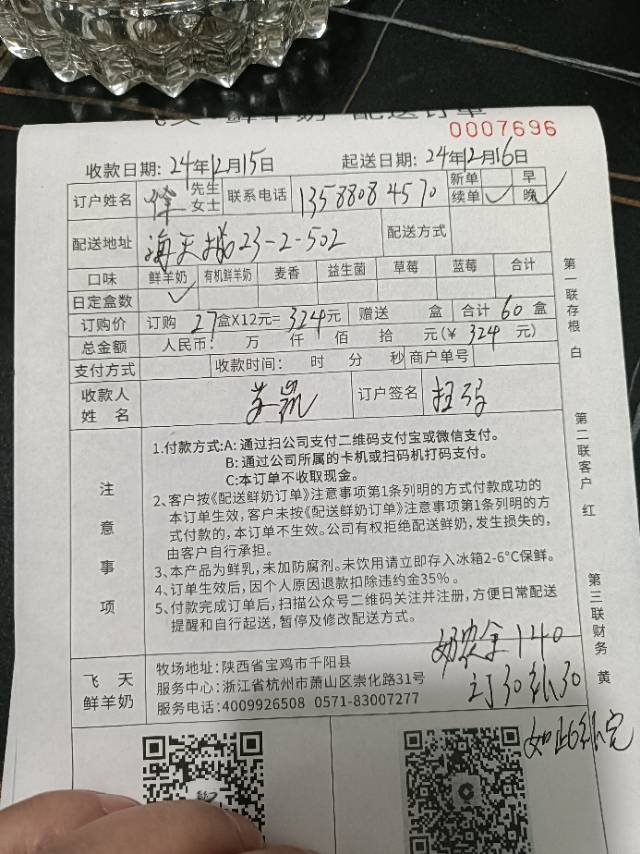 飞天·鲜羊奶 配送订单
0007696
收款日期：24年12月15日 起送日期：24年12月16日
订户姓名 徐 先生 女士 联系电话 13588084570 新单 续单 ✓ 早 晚 ✓
配送地址 海天城23-2-502 配送方式
口味 鲜羊奶 有机鲜羊奶 麦香 益生菌 草莓 蓝莓 合计
日定盒数 ✓
订购价 订购 27盒X12元=324元 赠送 盒 合计 60 盒
总金额 人民币： 万 仟 佰 拾 元(¥ 324 元)
支付方式 收款时间： 时 分 秒 商户单号
收款人姓名 订户签名 扫码
注意事项
1.付款方式:A: 通过扫公司支付二维码支付宝或微信支付。
B: 通过公司所属的卡机或扫码机打码支付。
C:本订单不收取现金。
2、客户按《配送鲜奶订单》注意事项第1条列明的方式付款成功的
本订单生效，客户未按《配送鲜奶订单》注意事项第1条列明的方
式付款的，本订单不生效。公司有权拒绝配送鲜奶，发生损失的，
由客户自行承担。
3、本产品为鲜乳，未加防腐剂。未饮用请立即存入冰箱2-6°C保鲜。
4、订单生效后，因个人原因退款扣除违约金35%。
5、付款完成订单后，扫描公众号二维码关注并注册，方便日常配送
提醒和自行起送，暂停及修改配送方式。
140
订30 30
飞天
鲜羊奶
牧场地址：陕西省宝鸡市千阳县
服务中心：浙江省杭州市萧山区崇化路31号
服务电话：4009926508 0571-83007277
第一联存根 白
第二联客户 红
第三联财务 黄